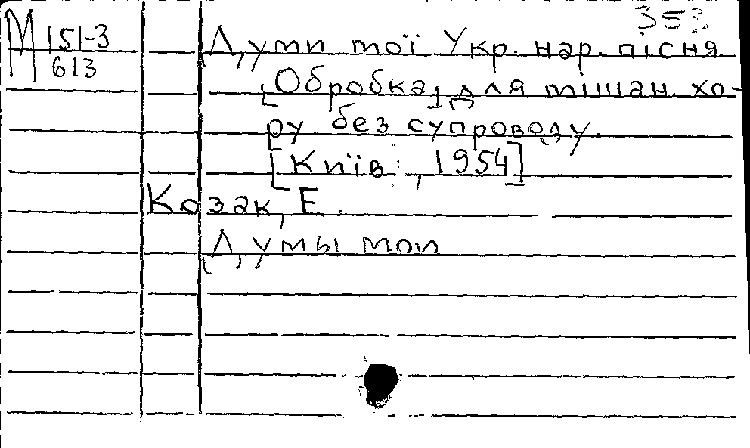 353
М 151-3
613
Думи мої Укр. нар. пісня
[Обробка] для мішан. хо-
ру без супроводу.
[Київ, 1954]
Козак, Е.
Думы мои